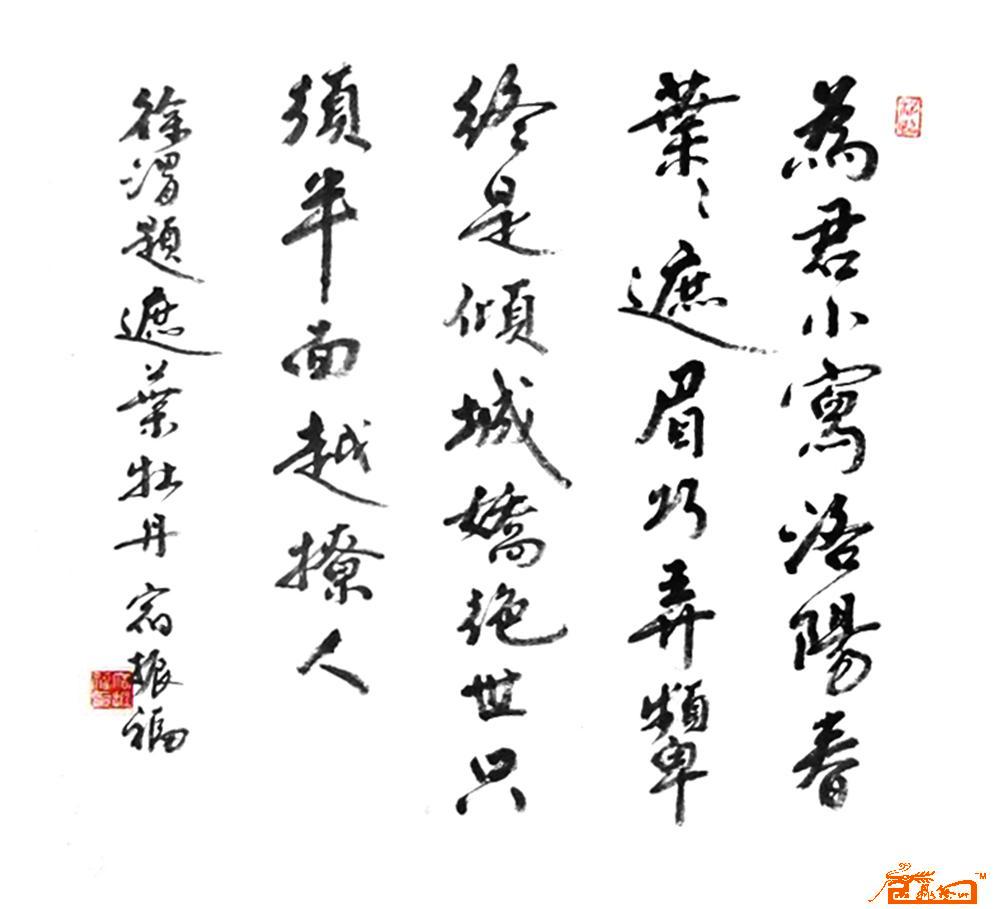 為君小寫洛陽春
葉〻遮眉巧弄顰
終是傾城嬌絕世只
須半面越撩人
徐渭題遮葉牡丹 宿振福